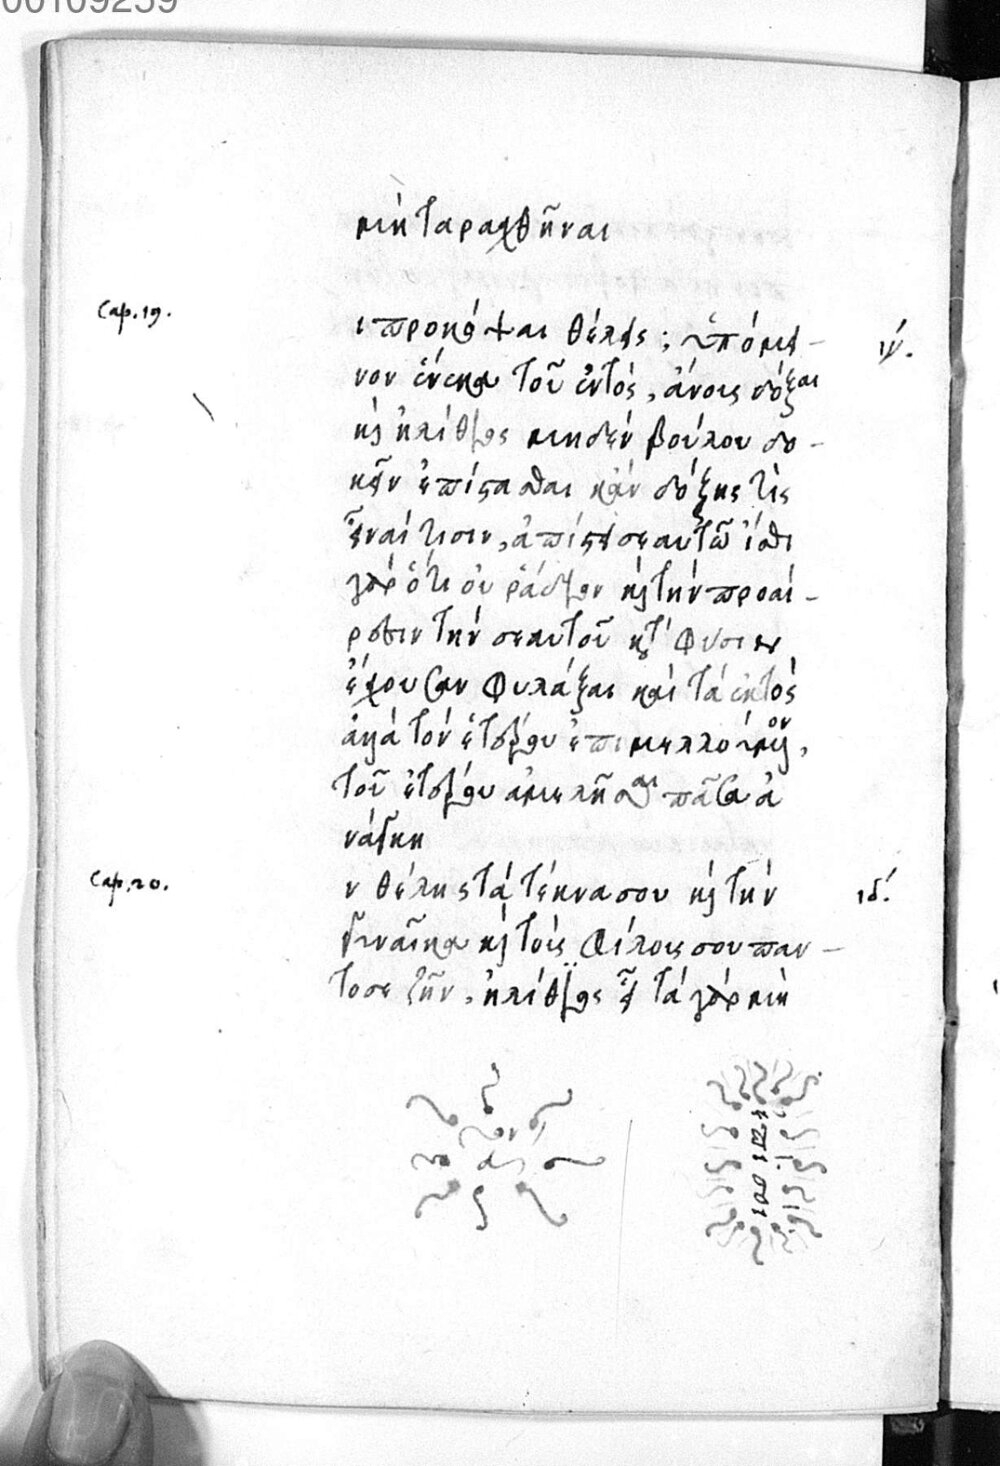 00109259
μὴ ταραχθῆναι
Cap. 19.
ι προκόψαι θέλεις; ὑπόμει-
ιγ´.
νον ἕνεκα τοῦ ἐντὸς, ἄνοις δόξαι
καὶ ἠλίθιος μηδὲν βούλου δο-
κεῖν ἐπίστασθαι κἂν δόξης τὶς
εἶναί τισιν, ἀπίστει σεαυτῷ ἴσθι
γὰρ ὅτι οὐ ῥάδιον καὶ τὴν προαί-
ρεσιν τὴν σεαυτοῦ κατὰ φύσιν
ἔχουσαν φυλάξαι καὶ τὰ ἐκτὸς
ἀλλὰ τὸν ἑτέρου ἐπιμελλούμενον,
τοῦ ἑτέρου ἀμελῆσαι πᾶσα ἀ
νάγκη
Cap. 20.
ν θέλης τὰ τέκνα σου καὶ τὴν
ιδ´.
γυναῖκα καὶ τοὺς φίλους σου παν-
τοσε ζῆν, ἠλίθιος εἶ τὰ γὰρ μὴ